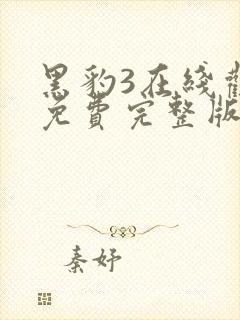 黑豹3在线
免费完整版
秦妤